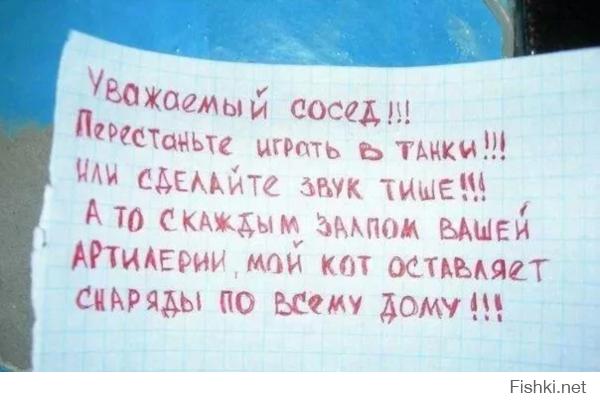 Уважаемый сосед!!!
Перестаньте играть в танки!!!
Или сделайте звук тише!!!
А то с каждым залпом вашей
артилерии, мой кот оставляет
снаряды по всему дому!!!
Fishki.net